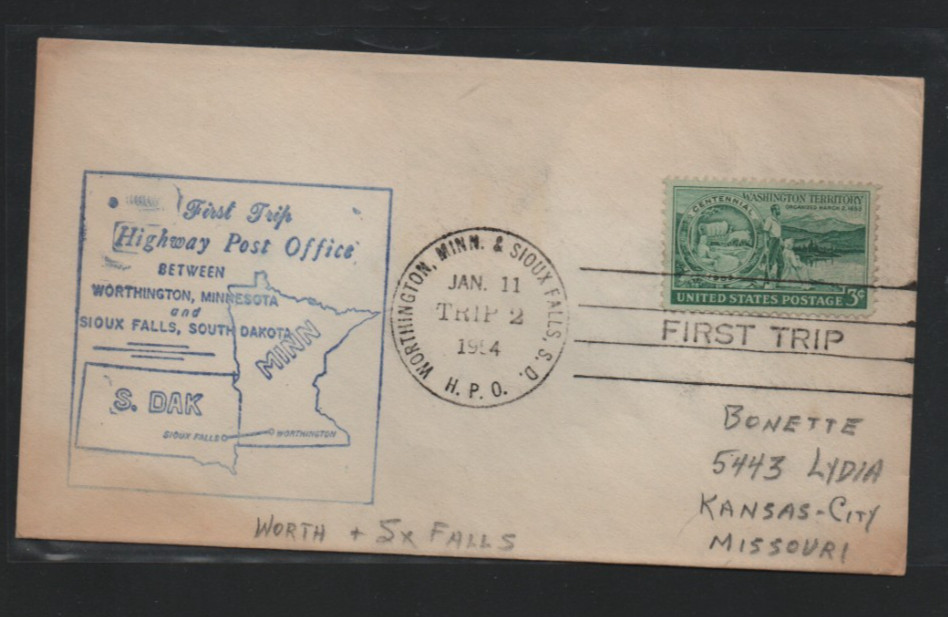 First Trip
Highway Post Office
BETWEEN
WORTHINGTON, MINNESOTA
and
SIOUX FALLS, SOUTH DAKOTA
MINN
S. DAK
SIOUX FALLS
WORTHINGTON
WORTHINGTON, MINN. & SIOUX FALLS, S. D.
JAN. 11
TRIP 2
1954
H. P. O.
CENTENNIAL
WASHINGTON TERRITORY
ORGANIZED MARCH 2, 1853
UNITED STATES POSTAGE 3¢
FIRST TRIP
BONETTE
5443 LYDIA
KANSAS-CITY
MISSOURI
WORTH + SX FALLS